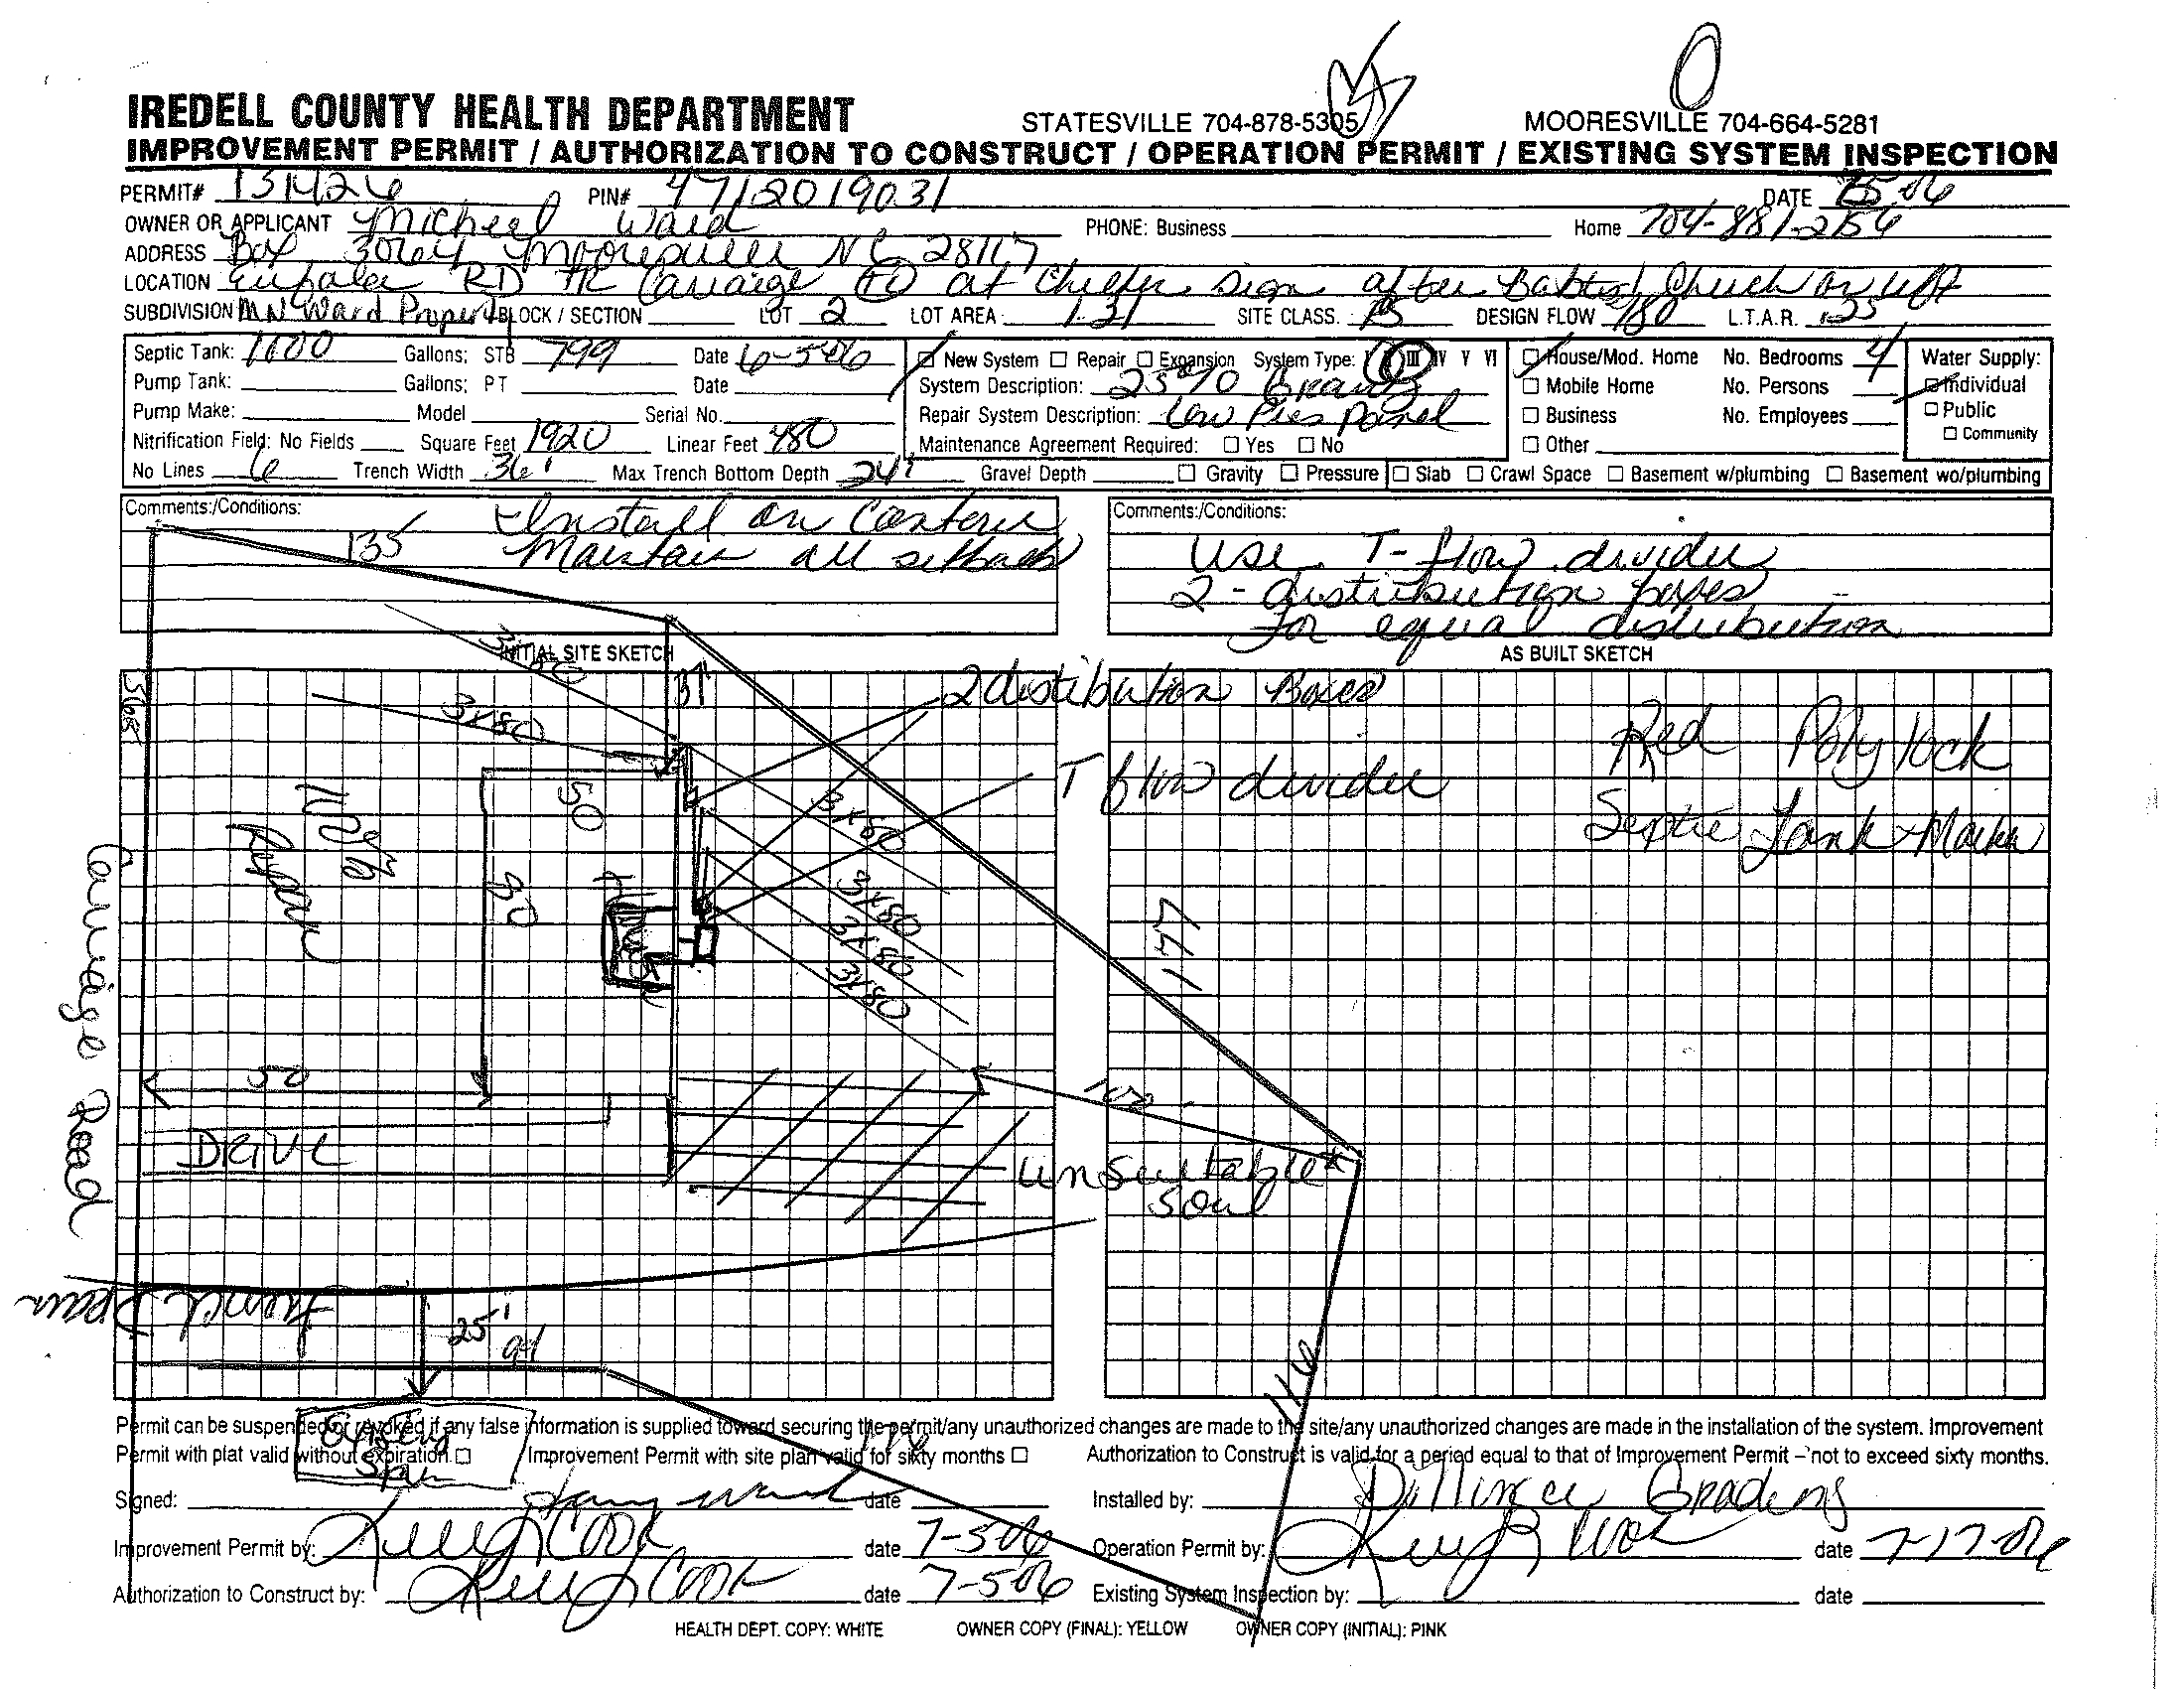 IREDELL COUNTY HEALTH DEPARTMENT
STATESVILLE 704-878-5305
MOORESVILLE 704-664-5281
IMPROVEMENT PERMIT / AUTHORIZATION TO CONSTRUCT / OPERATION PERMIT / EXISTING SYSTEM INSPECTION
PERMIT# 131426 PIN# 4712019031 DATE
OWNER OR APPLICANT Micheel Ward PHONE: Business Home 704-881-2156
ADDRESS Box 3064 Mooresville NC 28117
LOCATION RD TR Carraige at sign after Church on left
SUBDIVISION MN Ward Property BLOCK / SECTION LOT 2 LOT AREA 1.31 SITE CLASS. PS DESIGN FLOW 480 L.T.A.R. .25
Septic Tank: 1000 Gallons: STB 799 Date 6-5-06
Pump Tank: Gallons: PT Date
Pump Make: Model Serial No.
Nitrification Field: No Fields Square Feet 1920 Linear Feet 480
No Lines 6 Trench Width 36" Max Trench Bottom Depth 24" Gravel Depth □ Gravity □ Pressure
□ New System □ Repair □ Expansion System Type: III IV V VI
System Description: 25%
Repair System Description: Low Pres
Maintenance Agreement Required: □ Yes □ No
□ House/Mod. Home No. Bedrooms 4
□ Mobile Home No. Persons
□ Business No. Employees
□ Other
□ Slab □ Crawl Space □ Basement w/plumbing □ Basement wo/plumbing
Water Supply:
□ Individual
□ Public
□ Community
Comments:/Conditions:
Install on Contour
Maintain all setback
135
Comments:/Conditions:
Use T-flow divider
2-distribution boxes
for equal distribution
INITIAL SITE SKETCH
AS BUILT SKETCH
365
3x80
3x80
2 distribution Boxes
T flow divider
Red Polylock
Septic Tank + Marker
50
90
Repair
3x80
3x80
3x80
3x80
147
Carraige Road
50
DRIVE
100
unsuitable
soil
French Drain
25'
116
Permit can be suspended or revoked if any false information is supplied toward securing the permit/any unauthorized changes are made to the site/any unauthorized changes are made in the installation of the system. Improvement
Permit with plat valid without expiration □ Improvement Permit with site plan valid for sixty months □ Authorization to Construct is valid for a period equal to that of Improvement Permit – not to exceed sixty months.
Signed: date Installed by: Grading
Improvement Permit by: Cook date 7-5-06 Operation Permit by: date 7-17-06
Authorization to Construct by: Cook date 7-5-06 Existing System Inspection by: date
HEALTH DEPT. COPY: WHITE OWNER COPY (FINAL): YELLOW OWNER COPY (INITIAL): PINK